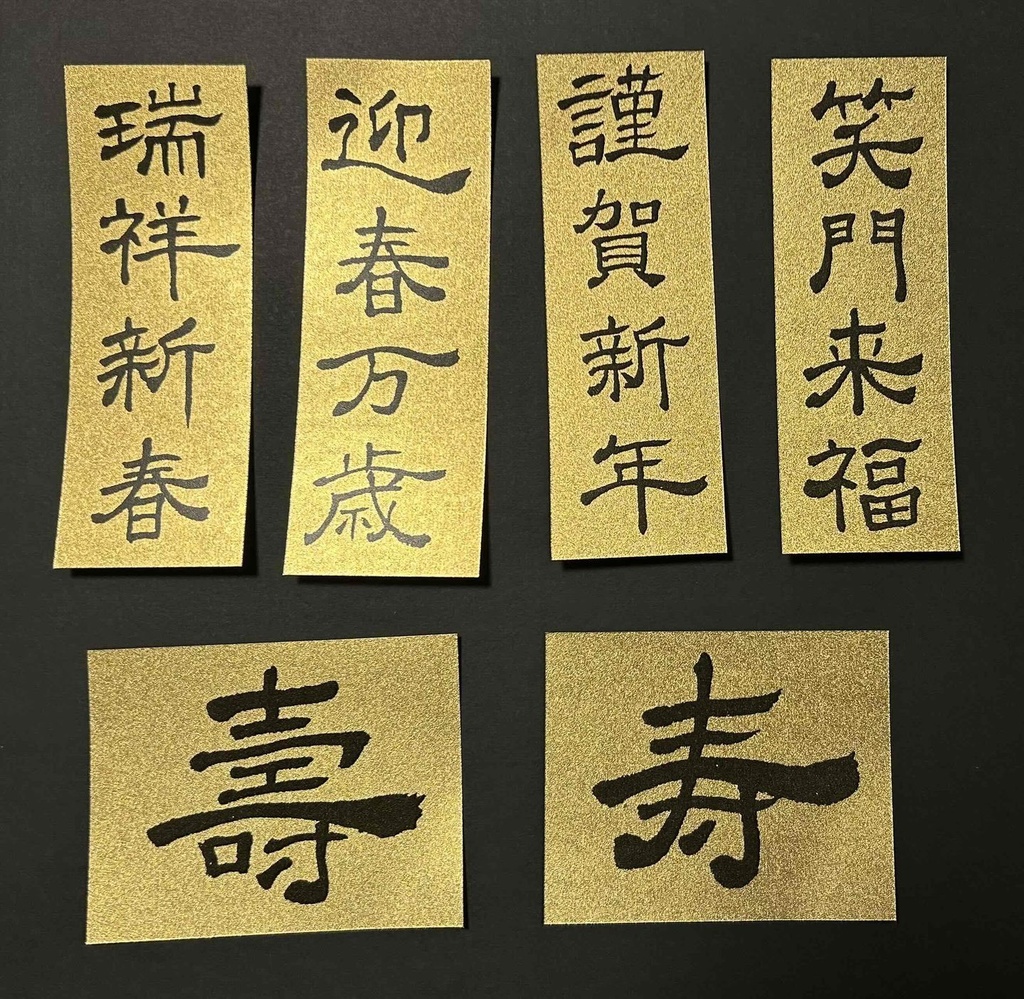 瑞祥新春
迎春万歳
謹賀新年
笑門来福
壽
寿